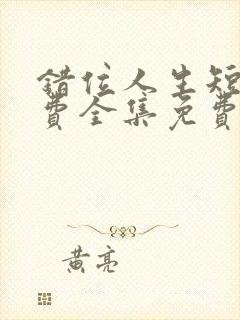 错位人生短
费全集免费
黄亮